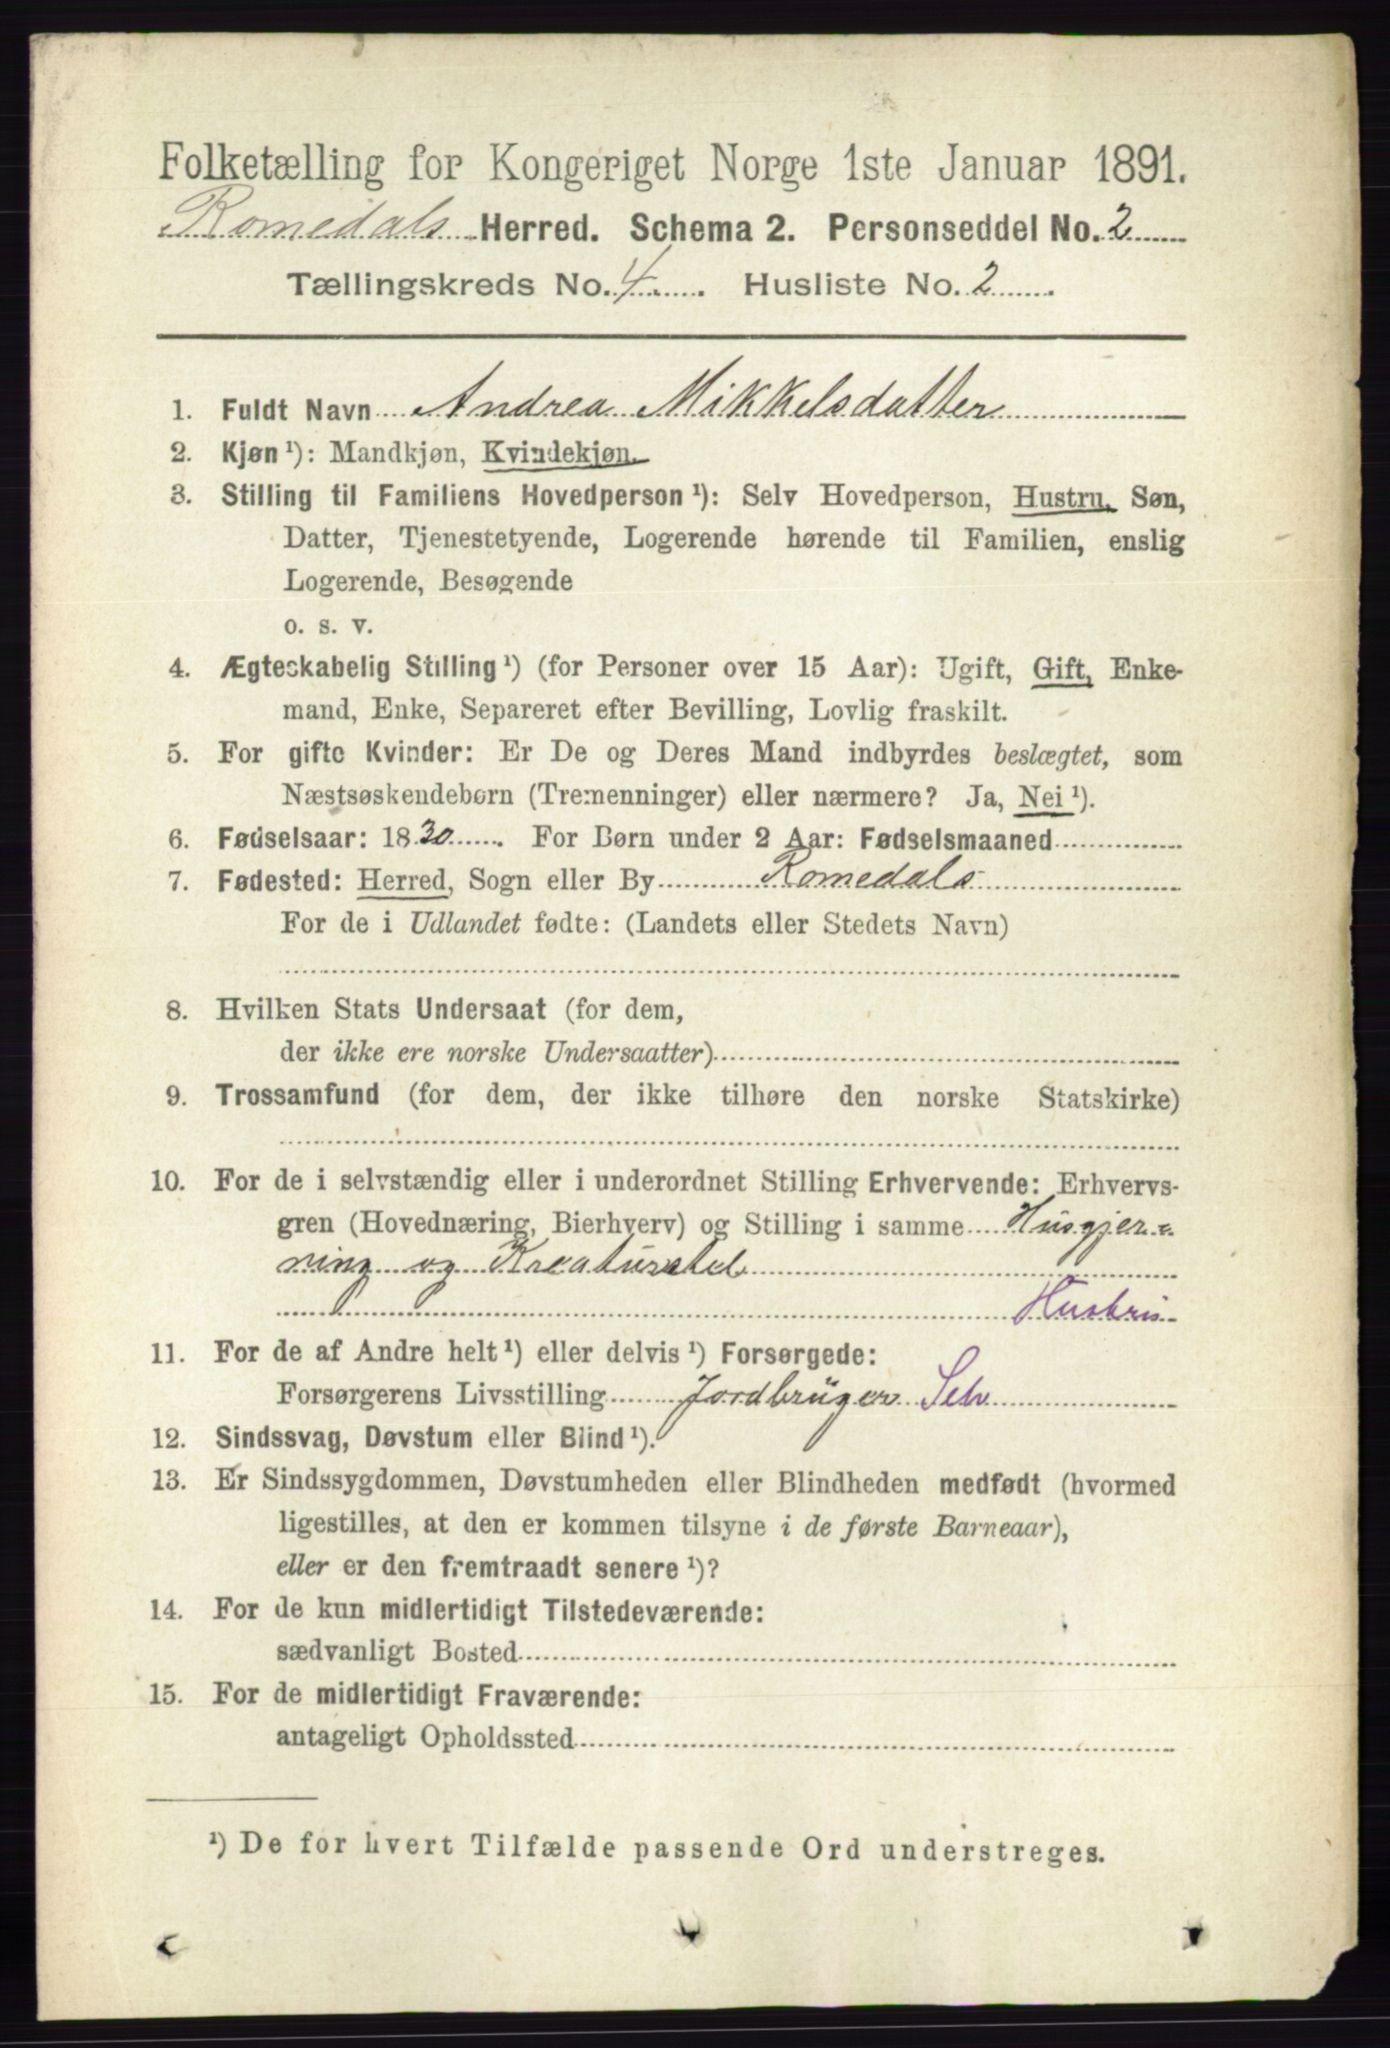 Folketælling for Kongeriget Norge 1ste Januar 1891.
Romedals Herred. Schema 2. Personseddel No. 2
Tællingskreds No. 4. Husliste No. 2
1. Fuldt Navn Andrea Mikkelsdatter
2. Kjøn ¹): Mandkjøn, Kvindekjøn.
3. Stilling til Familiens Hovedperson ¹): Selv Hovedperson, Hustru, Søn,
Datter, Tjenestetyende, Logerende hørende til Familien, enslig
Logerende, Besøgende
o. s. v.
4. Ægteskabelig Stilling ¹) (for Personer over 15 Aar): Ugift, Gift, Enke-
mand, Enke, Separeret efter Bevilling, Lovlig fraskilt.
5. For gifte Kvinder: Er De og Deres Mand indbyrdes beslægtet, som
Næstsøskendebørn (Tremenninger) eller nærmere? Ja, Nei ¹).
6. Fødselsaar: 1830. For Børn under 2 Aar: Fødselsmaaned
7. Fødested: Herred, Sogn eller By Romedals
For de i Udlandet fødte: (Landets eller Stedets Navn)
8. Hvilken Stats Undersaat (for dem,
der ikke ere norske Undersaatter)
9. Trossamfund (for dem, der ikke tilhøre den norske Statskirke)
10. For de i selvstændig eller i underordnet Stilling Erhvervende: Erhvervs-
gren (Hovednæring, Bierhverv) og Stilling i samme Husgjer=
ning og Kreaturstel
Hustru
11. For de af Andre helt ¹) eller delvis ¹) Forsørgede:
Forsørgerens Livsstilling Jordbrüger Selv
12. Sindssvag, Døvstum eller Blind ¹).
13. Er Sindssygdommen, Døvstumheden eller Blindheden medfødt (hvormed
ligestilles, at den er kommen tilsyne i de første Barneaar),
eller er den fremtraadt senere ¹)?
14. For de kun midlertidigt Tilstedeværende:
sædvanligt Bosted
15. For de midlertidigt Fraværende:
antageligt Opholdssted
¹) De for hvert Tilfælde passende Ord understreges.